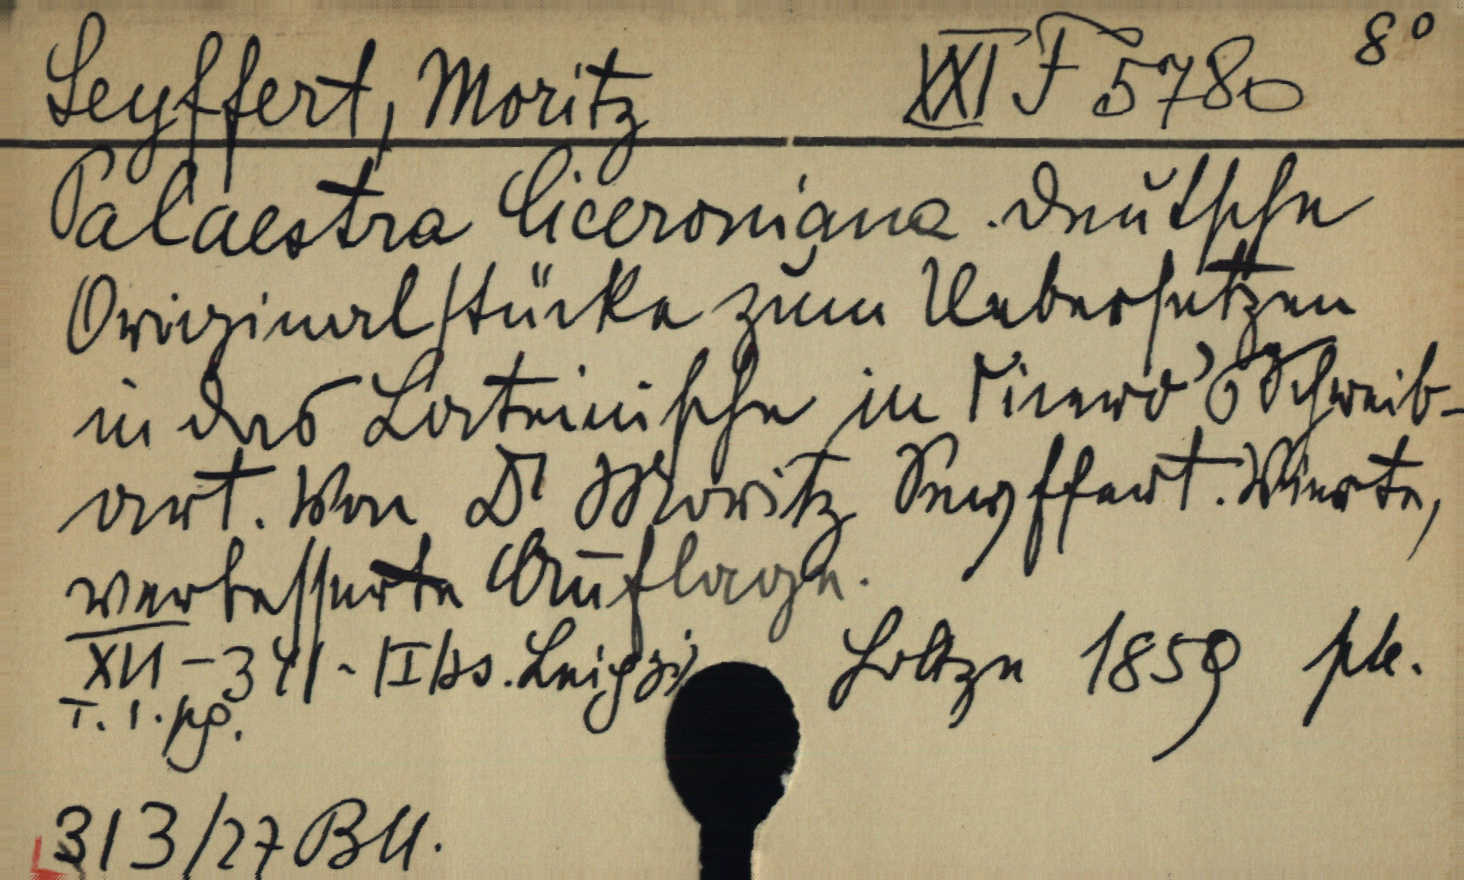 Seyffert, Moritz XXI F 5780 8°
Palaestra Ciceroniana. Deutsche
Originalstücke zum Uebersetzen
in das Lateinische in Cicero's Schreib-
art. Von Dr Moritz Seyffert. Vierte,
verbesserte Auflage.
XII-341- I Leipzi Holtze 1859 ple.
T. 1. pg.
313/27 BU.